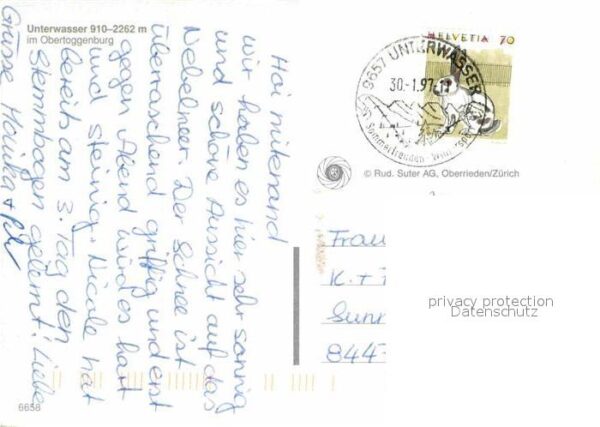 Unterwasser 910–2262 m
im Obertoggenburg
Hoi mitenand
wir haben es hier sehr sonnig
und schöne Aussicht auf das
Nebelmeer. Der Schnee ist
überraschend griffig und erst
gegen Abend wird es hart
und steinig. Nicole hat
bereits am 3. Tag den
Stemmbogen gelernt! Liebe
Grüsse Monika +
6658
HELVETIA 70
9657 UNTERWASSER
30.-1.97-17
Sommerfreuden
© Rud. Suter AG, Oberrieden/Zürich
Frau
K. +
Sunn
844
privacy protection
Datenschutz